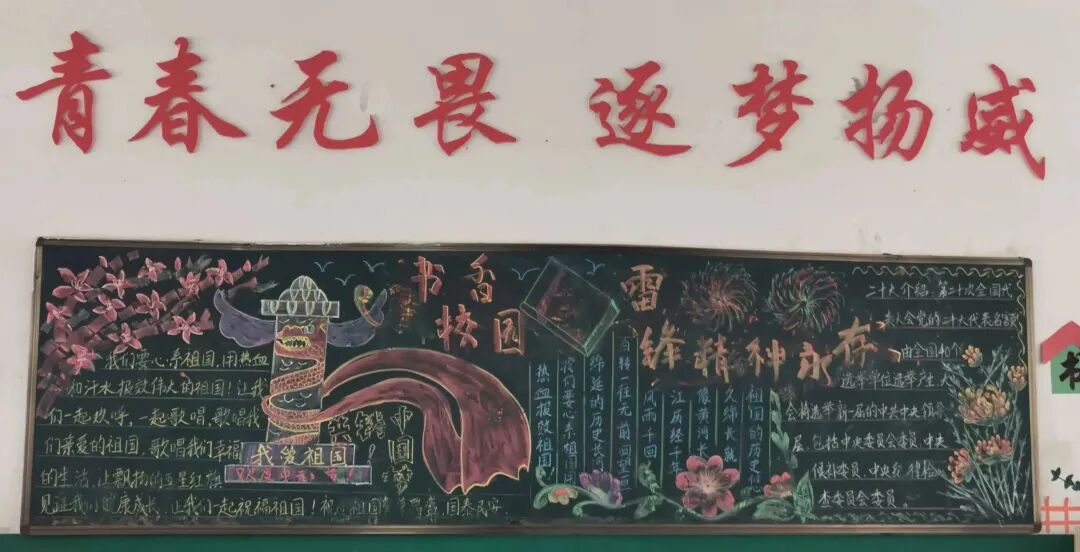 青春无畏 逐梦扬威
书香
校园
雷
锋精神永存
我们要心系祖国,用热血
和汗水报效伟大的祖国!让我
们一起欢呼,一起歌唱,歌唱我
们亲爱的祖国,歌唱我们幸福
的生活,让飘扬的五星红旗
见证我们健康成长,让我们一起祝福祖国!祝 祖国 国泰民安
我爱祖国
中
国
祖国的历史
久绵长,就
像黄河长
江历经千年
风雨千回
百转一往无前回望
绵延的历史长
我们要心系祖国用
热血报效祖国
二十大介绍 第二十次全国代
表人会党的二十大代表名额
由全国40个
选举单位选举产生 大
会将选举新一届的中共中央领导
层 包括中央委员会委员 中央
候补委员 中央纪律检
查委员会委员